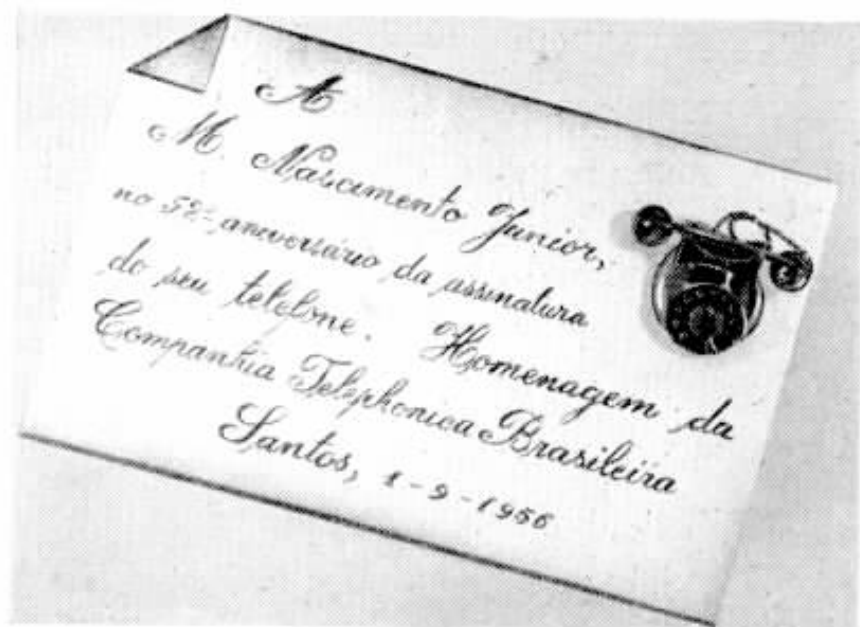 A
M. Nascimento Junior,
no 58º aniversário da assinatura
do seu telefone. Homenagem da
Companhia Telephonica Brasileira
Santos, 1-9-1956